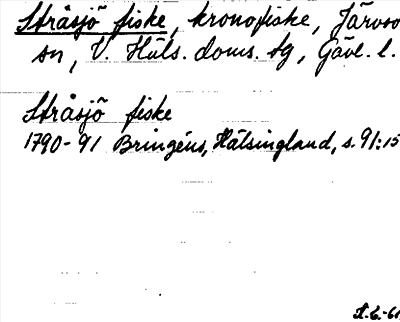 Stråsjö fiske, kronofiske, Järvsö
sn, V. Häls. doms. tg, Gävl. l.
Stråsjö fiske
1790-91 Bringéus, Hälsingland, s. 91:15